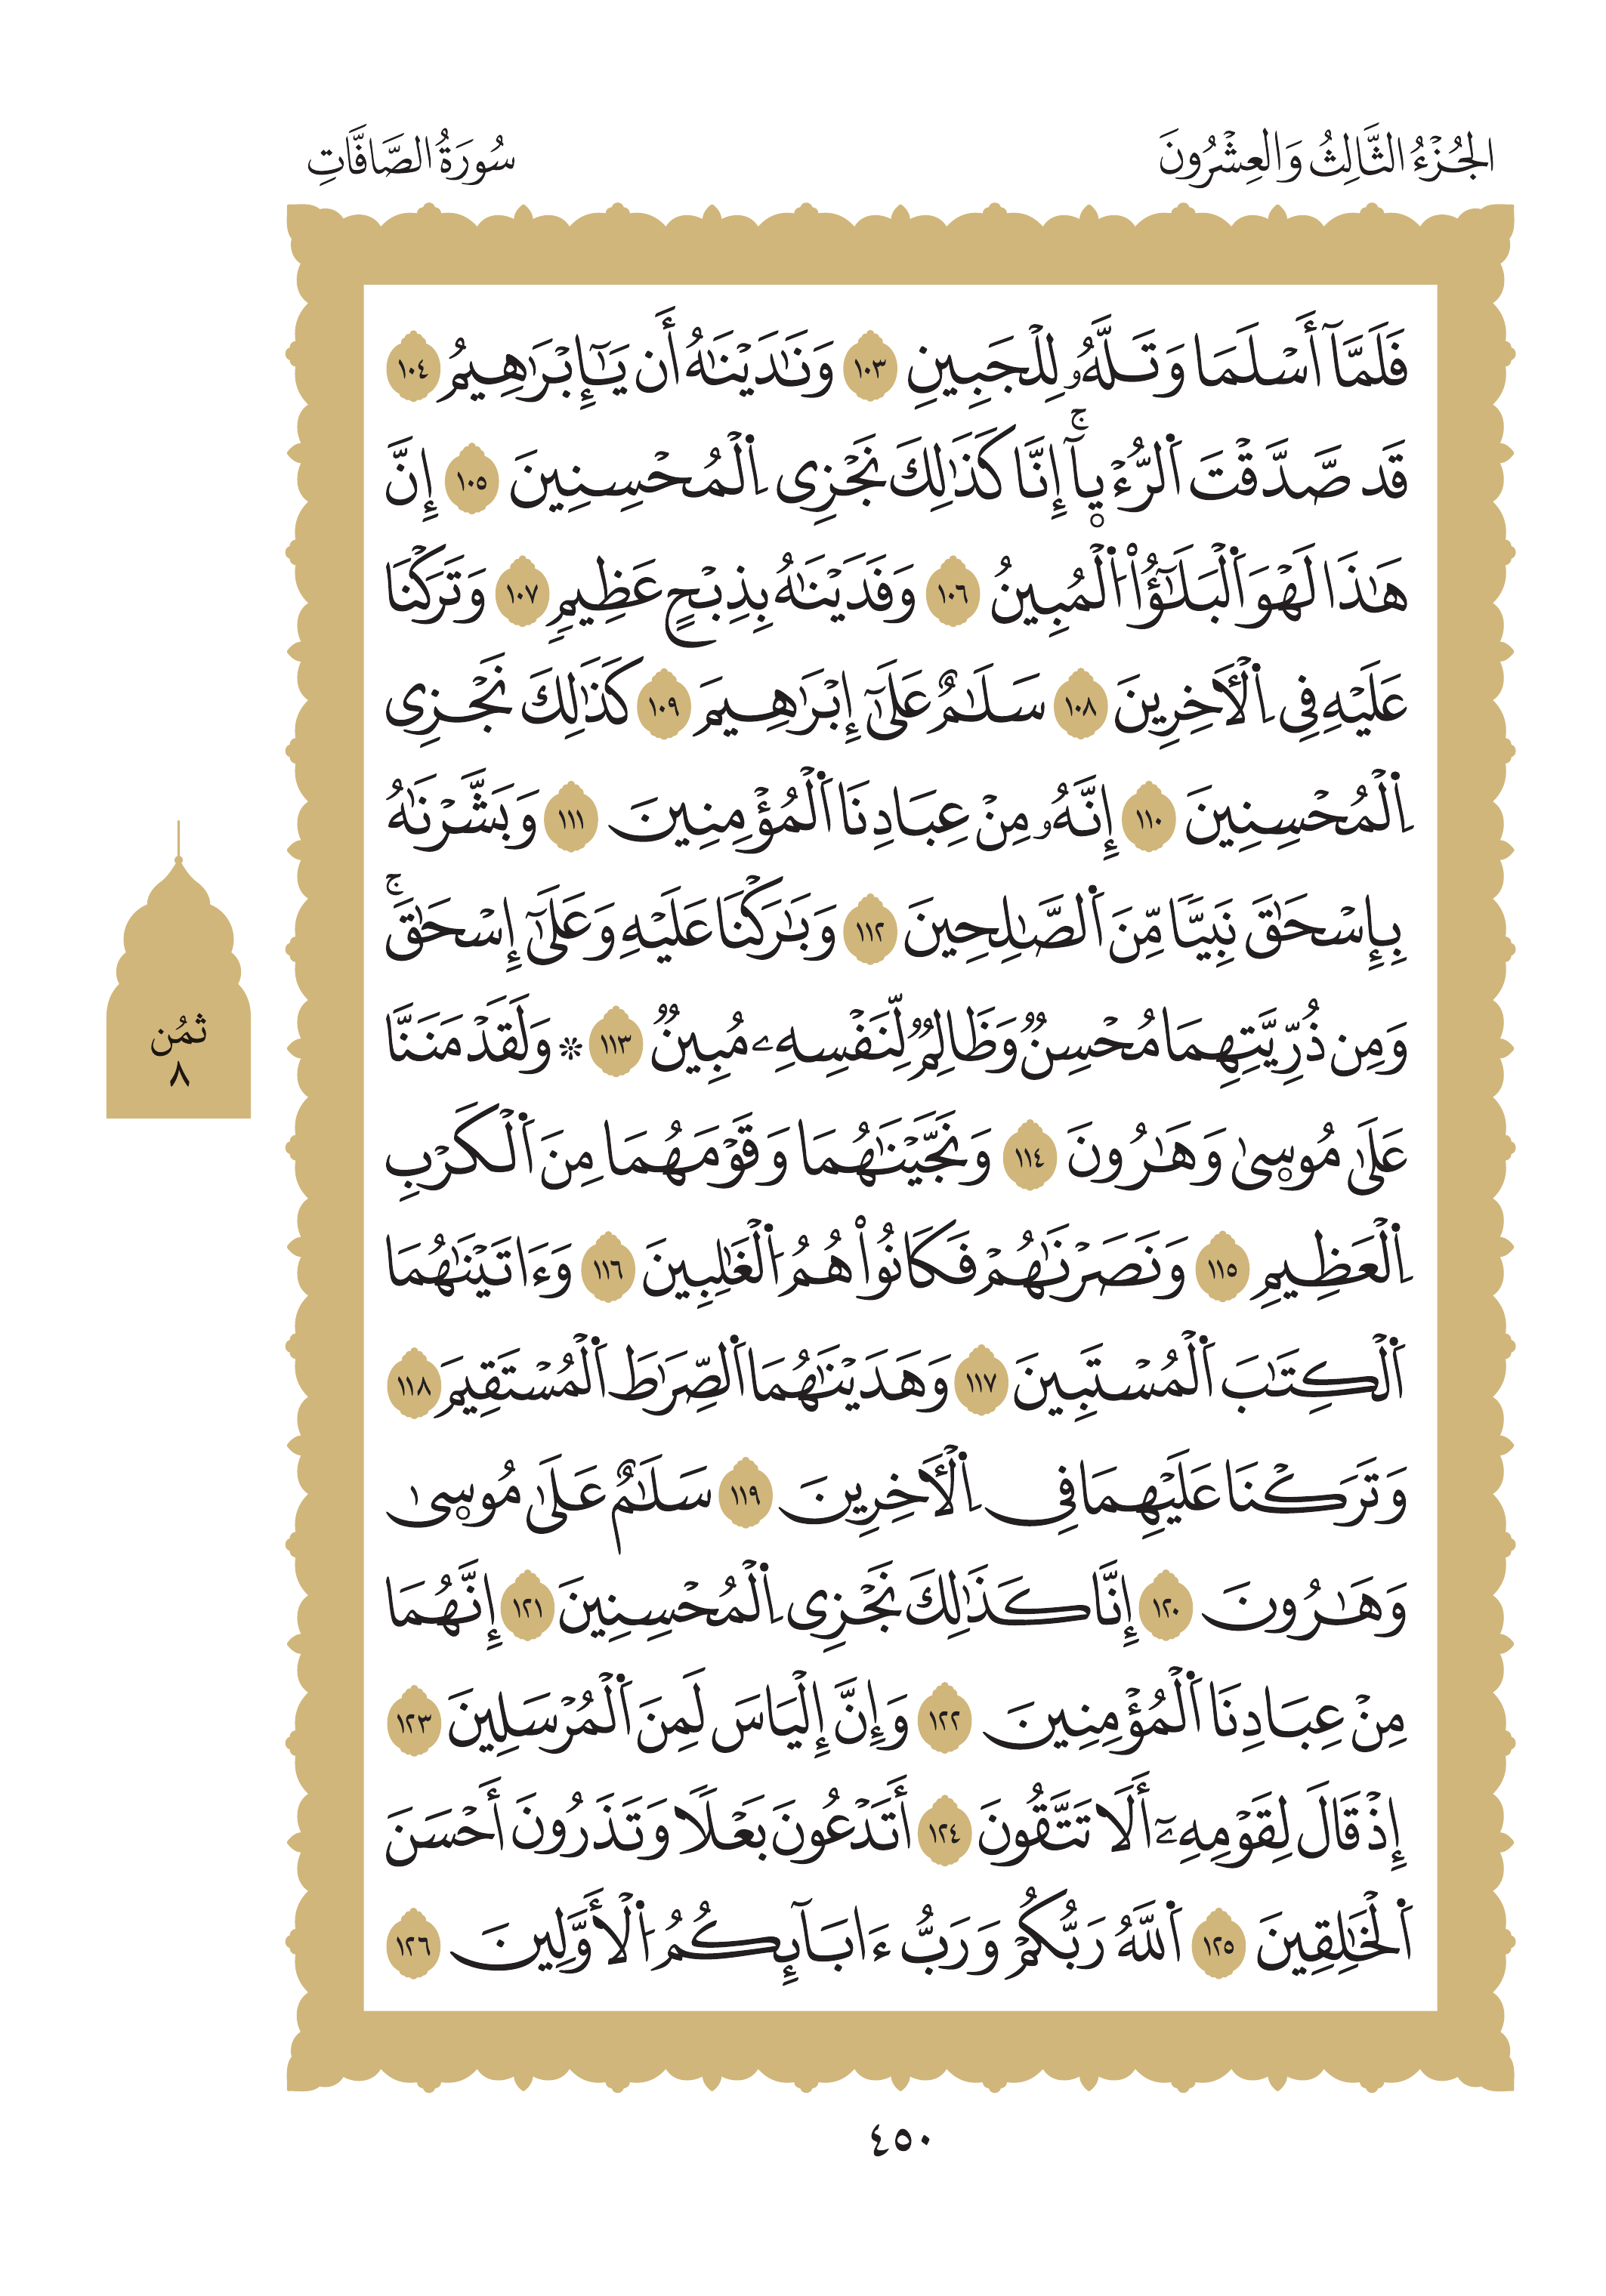 الجُزْءُ الثَّالِثُ وَالعِشْرُونَ
سُورَةُ الصَّافَّاتِ
فَلَمَّآ أَسْلَمَا وَتَلَّهُۥ لِلْجَبِينِ ١٠٣ وَنَٰدَيْنَٰهُ أَن يَٰٓإِبْرَٰهِيمُ ١٠٤
قَد صَّدَّقْتَ اَ۬لرُّءْي۪آۚ إِنَّا كَذَٰلِكَ نَجْزِى اِ۬لْمُحْسِنِينَ ١٠٥ إِنَّ
هَٰذَا لَهْوَ اَ۬لْبَلَٰٓؤُاْ اُ۬لْمُبِينُ ١٠٦ وَفَدَيْنَٰهُ بِذِبْحٍ عَظِيمٍ ١٠٧ وَتَرَكْنَا
عَلَيْهِ فِى اِ۬لْأٓخِرِينَ ١٠٨ سَلَٰمٌ عَلَىٰٓ إِبْرَٰهِيمَ ١٠٩ كَذَٰلِكَ نَجْزِى
اِ۬لْمُحْسِنِينَ ١١٠ إِنَّهُۥ مِنْ عِبَادِنَا اَ۬لْمُؤْمِنِينَ ١١١ وَبَشَّرْنَٰهُ
بِإِسْحَٰقَ نَبِيًّا مِّنَ اَ۬لصَّٰلِحِينَ ١١٢ وَبَٰرَكْنَا عَلَيْهِ وَعَلَىٰٓ إِسْحَٰقَۚ
وَمِن ذُرِّيَّتِهِمَا مُحْسِنٌ وَظَالِمٌ لِّنَفْسِهِۦ مُبِينٌ ١١٣ ۞ وَلَقَدْ مَنَنَّا
عَلَىٰ مُوس۪ىٰ وَهَٰرُونَ ١١٤ وَنَجَّيْنَٰهُمَا وَقَوْمَهُمَا مِنَ اَ۬لْكَرْبِ
اِ۬لْعَظِيمِ ١١٥ وَنَصَرْنَٰهُمْ فَكَانُواْ هُمُ اُ۬لْغَٰلِبِينَ ١١٦ وَءَاتَيْنَٰهُمَا
اَ۬لْكِتَٰبَ اَ۬لْمُسْتَبِينَ ١١٧ وَهَدَيْنَٰهُمَا اَ۬لصِّرَٰطَ اَ۬لْمُسْتَقِيمَ ١١٨
وَتَرَكْنَا عَلَيْهِمَا فِى اِ۬لْأٓخِرِينَ ١١٩ سَلَٰمٌ عَلَىٰ مُوس۪ىٰ
وَهَٰرُونَ ١٢٠ إِنَّا كَذَٰلِكَ نَجْزِى اِ۬لْمُحْسِنِينَ ١٢١ إِنَّهُمَا
مِنْ عِبَادِنَا اَ۬لْمُؤْمِنِينَ ١٢٢ وَإِنَّ إِلْيَاسَ لَمِنَ اَ۬لْمُرْسَلِينَ ١٢٣
إِذْ قَالَ لِقَوْمِهِۦٓ أَلَا تَتَّقُونَ ١٢٤ أَتَدْعُونَ بَعْلًا وَتَذَرُونَ أَحْسَنَ
اَ۬لْخَٰلِقِينَ ١٢٥ اَ۬للَّهُ رَبُّكُمْ وَرَبُّ ءَابَآئِكُمُ اُ۬لْأَوَّلِينَ ١٢٦
ثمُن
٨
٤٥٠